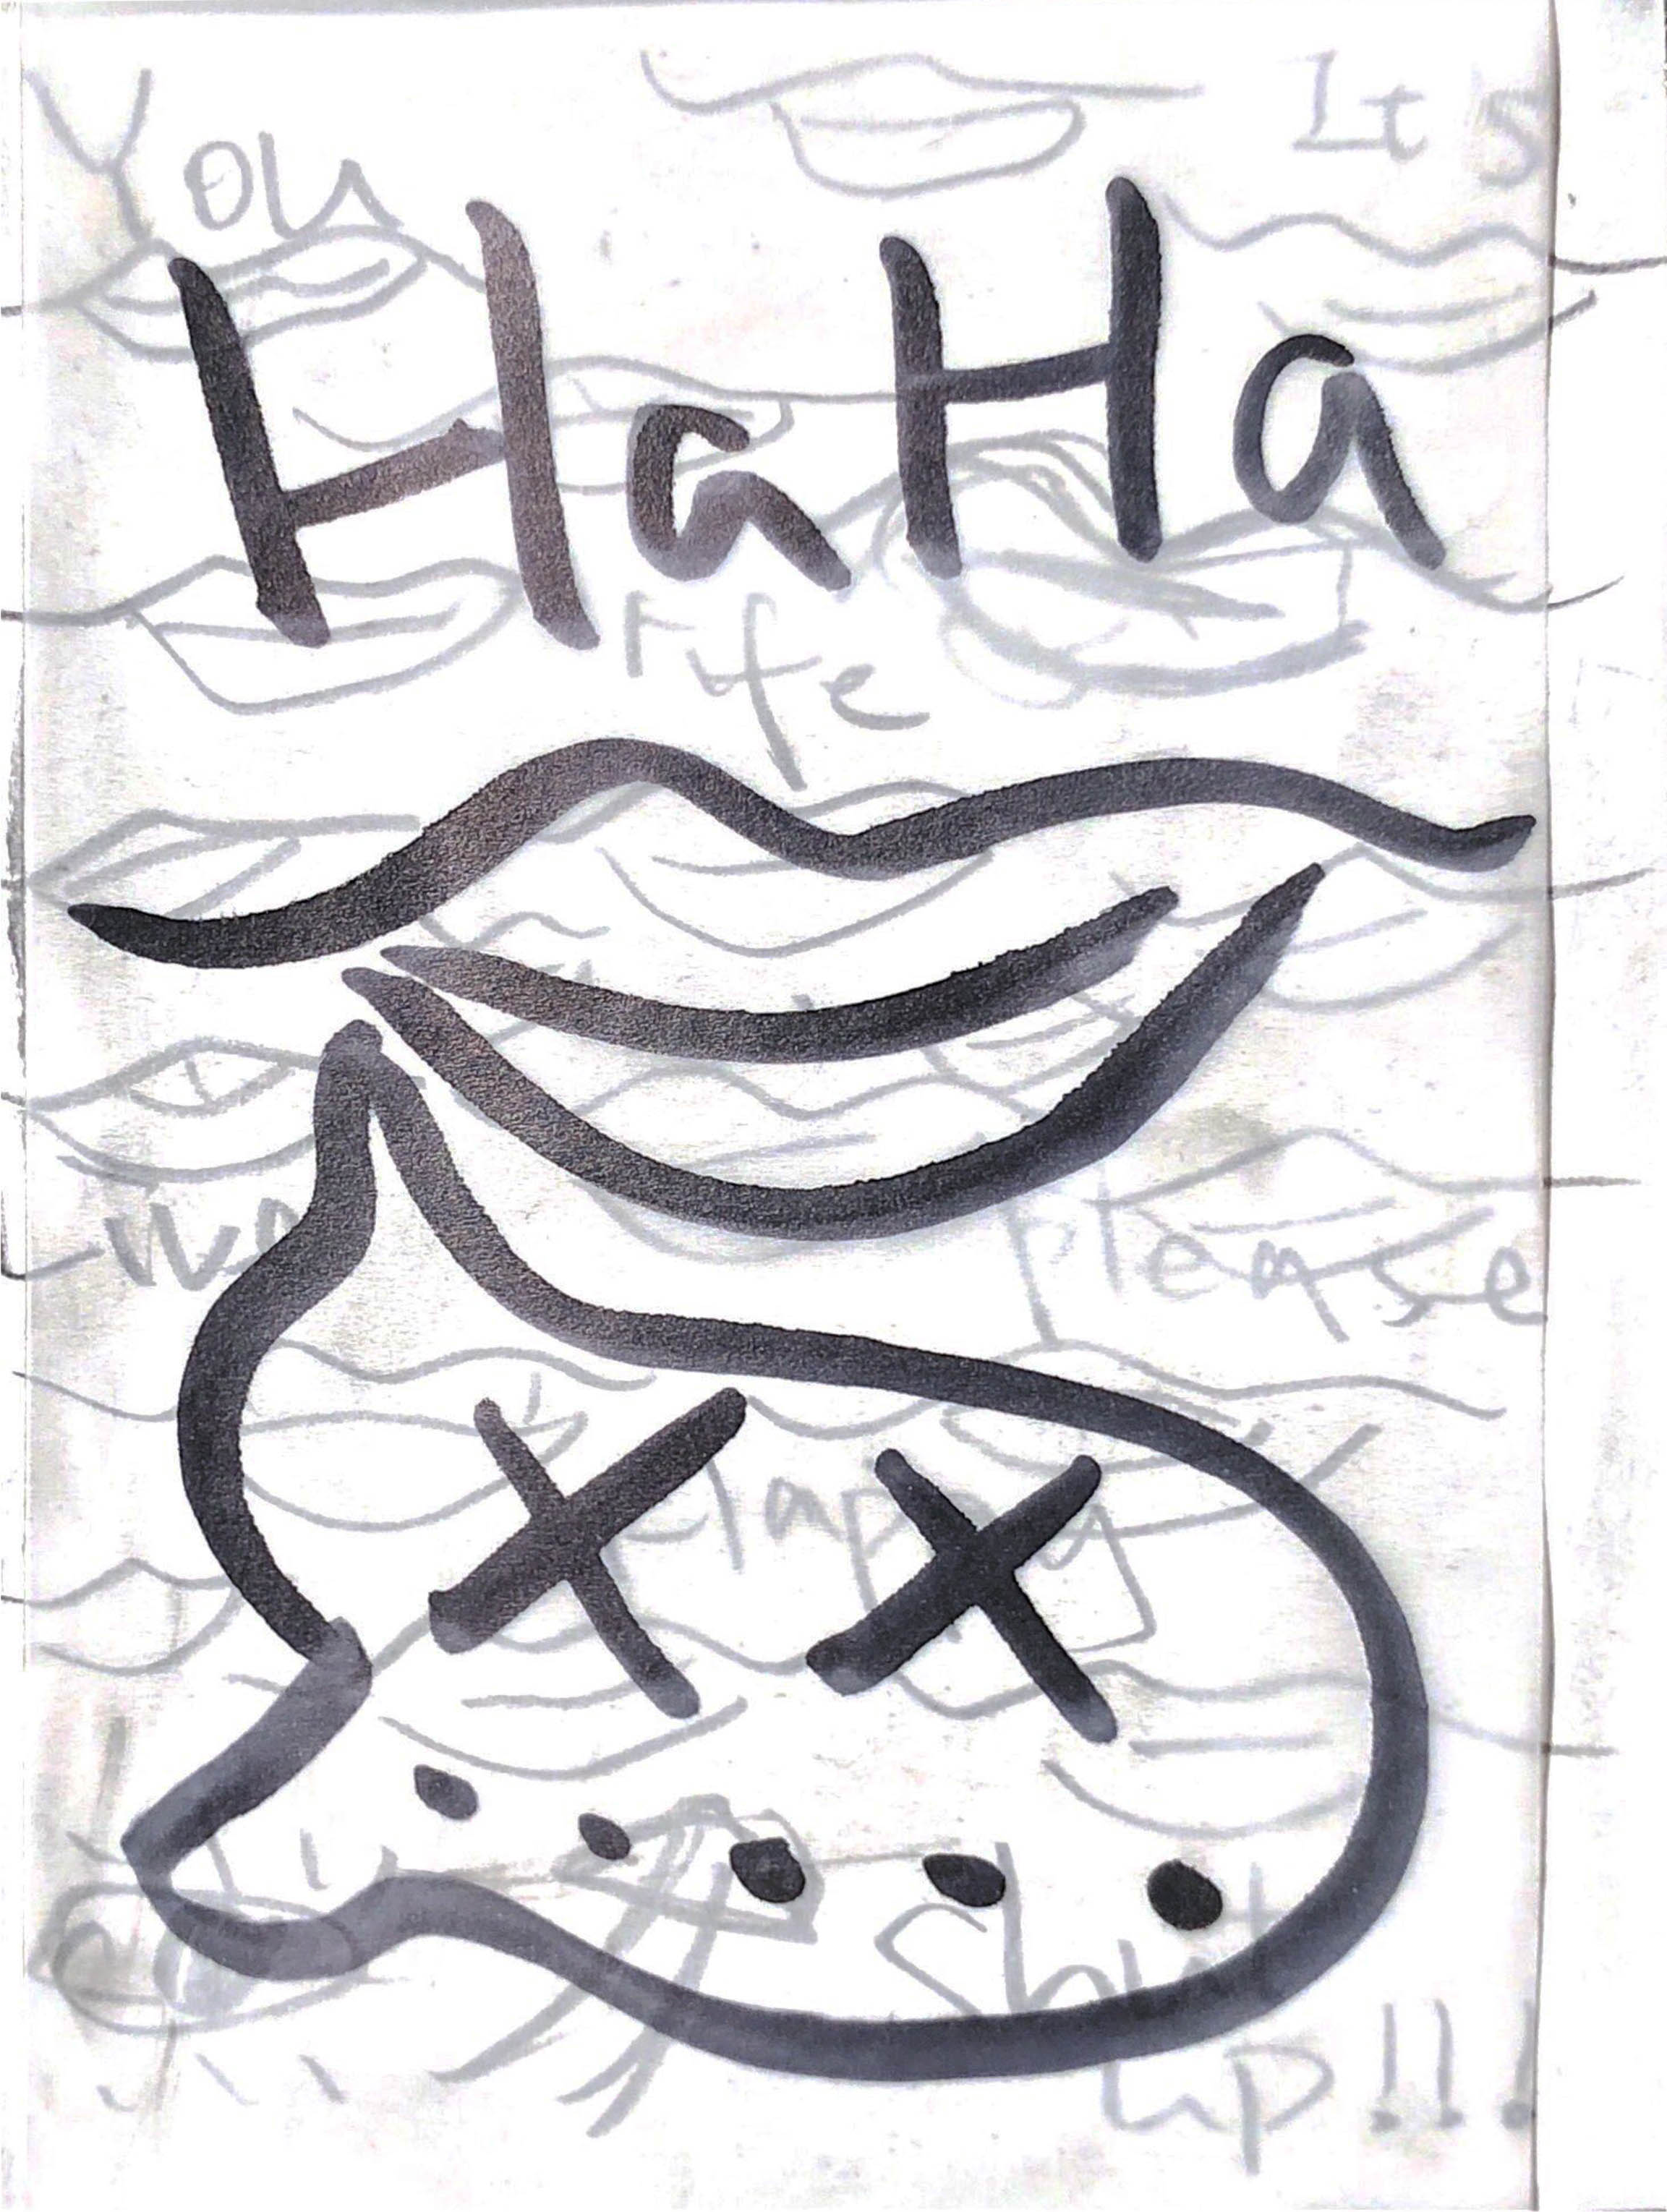 You
It's
HaHa
life
please
Happy
Shut
up!!!